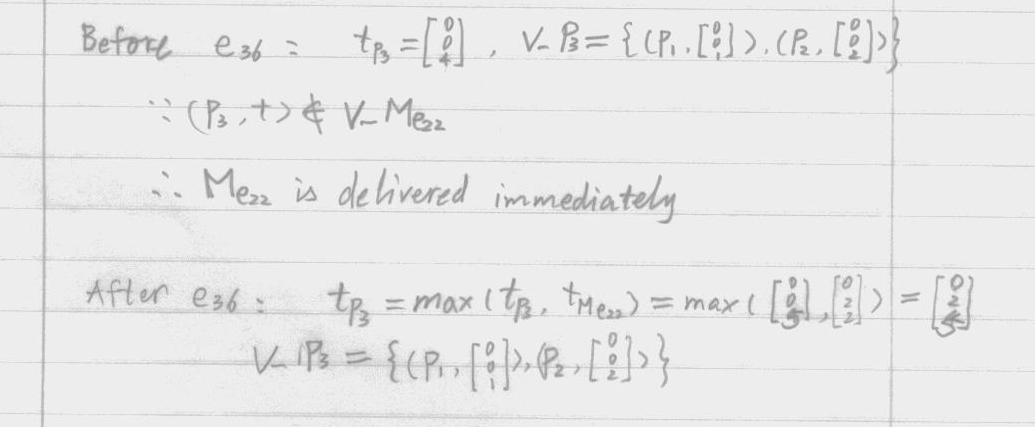 Before e₃₆ : t_P₃ = [0 0 4], V_P₃ = {(P₁, [0 0 1]), (P₂, [0 0 2])}
∵ (P₃, t) ∉ V_Me₂₂
∴ Me₂₂ is delivered immediately
After e₃₆ : t_P₃ = max(t_P₃, t_Me₂₂) = max([0 0 5], [0 2 2]) = [0 2 5]
V_P₃ = {(P₁, [0 0 1]), (P₂, [0 0 2])}